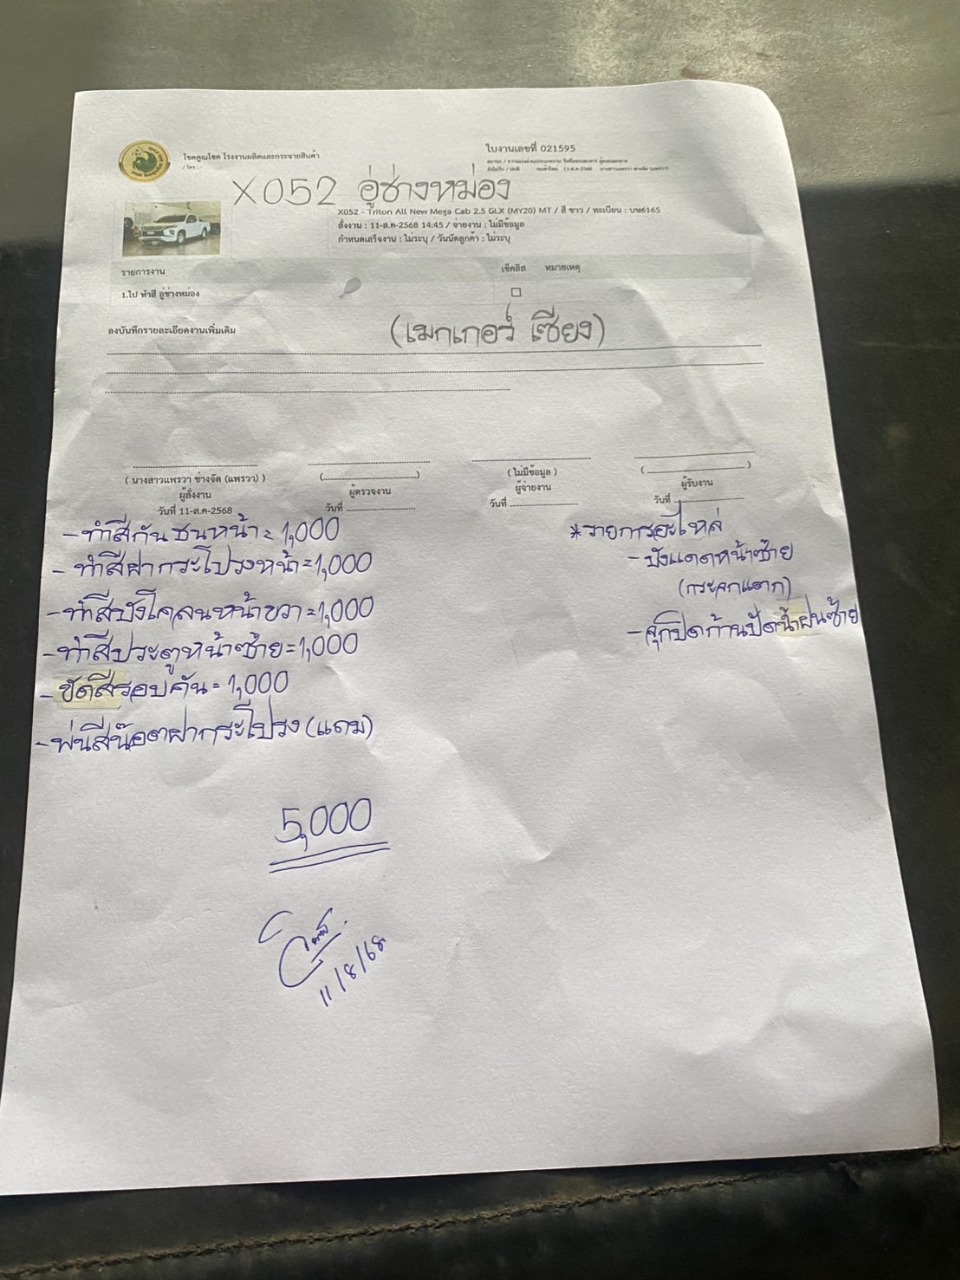 โชคคูณโชค โรงงานผลิตและกระจายสินค้า
/ โทร : -
ใบงานเลขที่ 021595
X052 อู่ช่างหม่อง
X052 - Triton All New Mega Cab 2.5 GLX (MY20) MT / สี ขาว / ทะเบียน : บษ6165
สั่งงาน : 11-ส.ค-2568 14:45 / จ่ายงาน : ไม่มีข้อมูล
กำหนดเสร็จงาน : ไม่ระบุ / วันนัดลูกค้า : ไม่ระบุ
รายการงาน เช็คลิส หมายเหตุ
1.ไป ทำสี อู่ช่างหม่อง
ลงบันทึกรายละเอียดงานเพิ่มเติม
(เมกเกอร์ เซียง)
( นางสาวแพรวา ช่างจัด (แพรวา) ) ( ) ( ไม่มีข้อมูล ) ( )
ผู้สั่งงาน ผู้ตรวจงาน ผู้จ่ายงาน ผู้รับงาน
วันที่ 11-ส.ค-2568 วันที่ วันที่ วันที่
- ทำสีกันชนหน้า = 1,000
- ทำสีฝากระโปรงหน้า = 1,000
- ทำสีบังโคลนหน้าขวา = 1,000
- ทำสีประตูหน้าซ้าย = 1,000
- ขัดสีรอบคัน = 1,000
- พ่นสีน๊อตฝากระโปรง (แถม)
*รายการอะไหล่
- บังแดดหน้าซ้าย
(กระจกแตก)
- จุกปิดก้านปัดน้ำฝนซ้าย
5,000
11/8/68